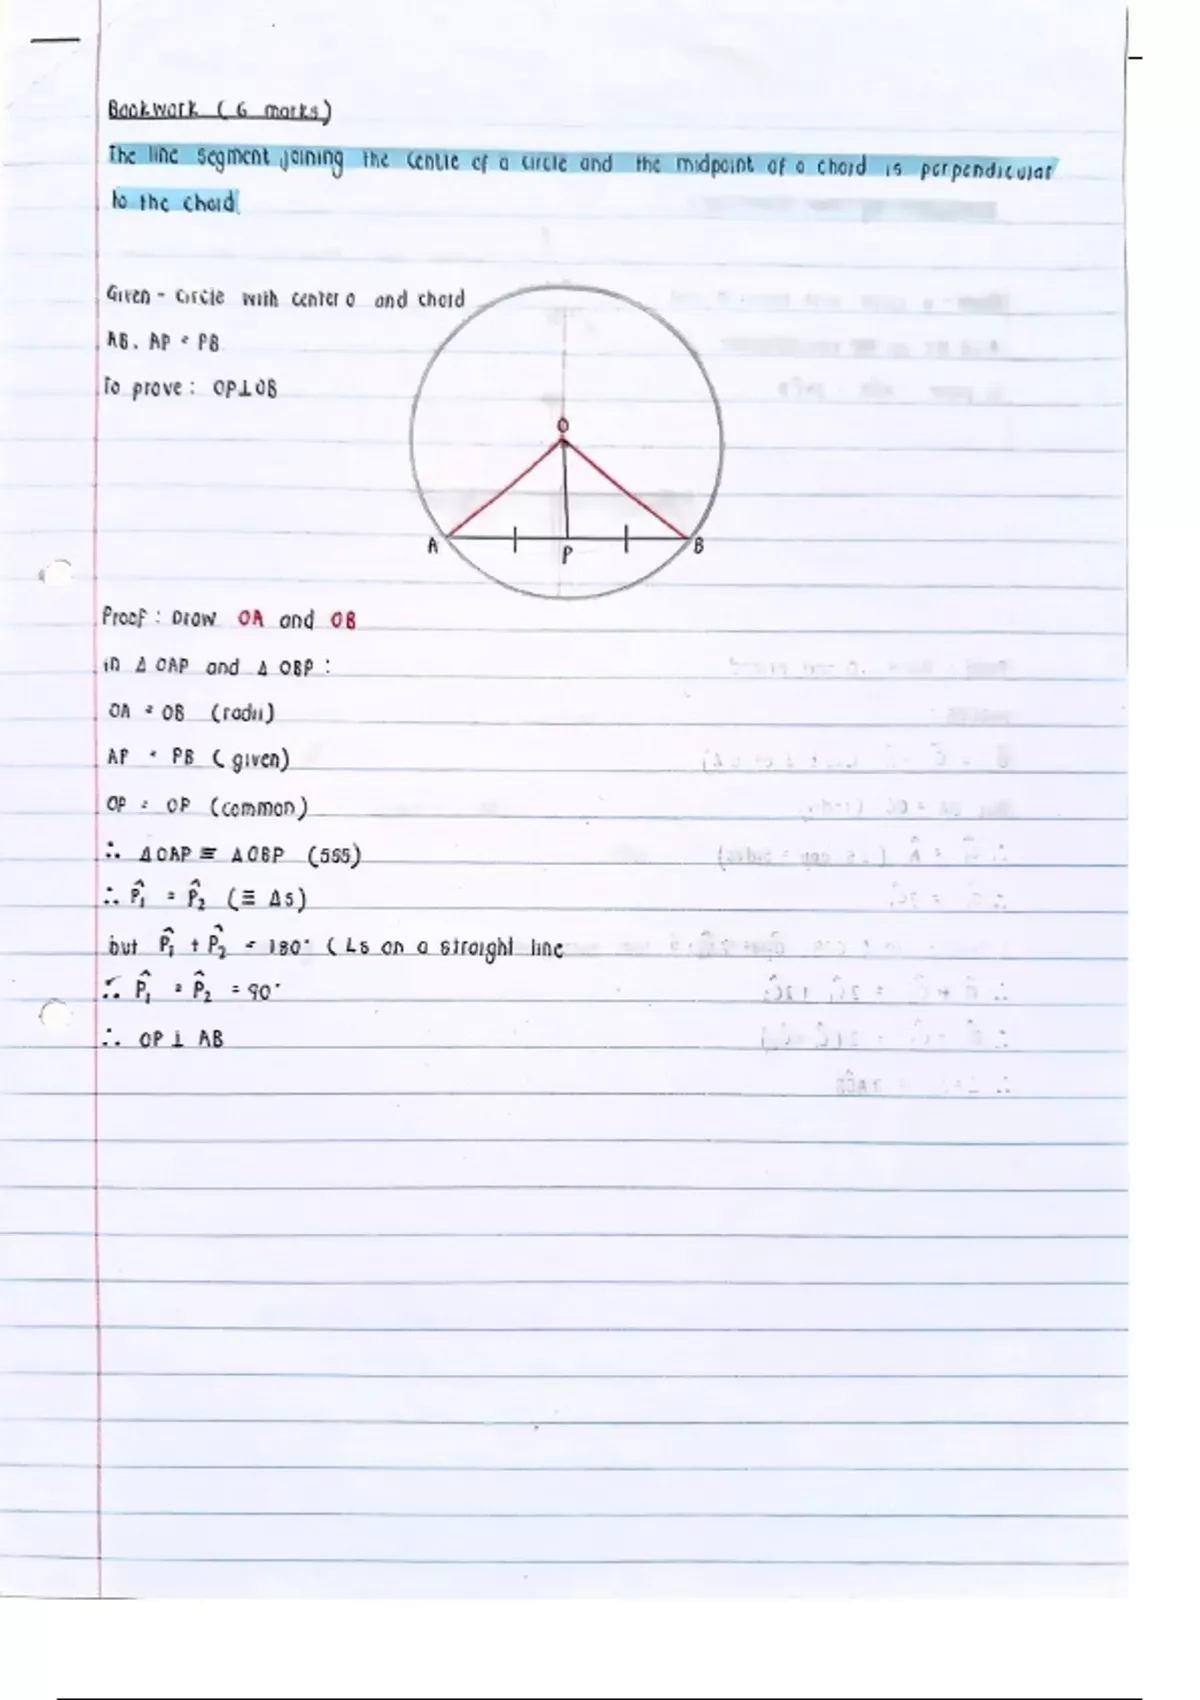 Bookwork (6 marks)
The line segment joining the centre of a circle and the midpoint of a chord is perpendicular
to the chord.
Given - circle with center O and chord
AB. AP = PB
To prove : OP⊥OB
O
A
P
B
Proof : Draw OA and OB
in Δ OAP and Δ OBP :
OA = OB (radii)
AP = PB (given)
OP = OP (common)
∴ ΔOAP ≡ ΔOBP (SSS)
∴ P̂₁ = P̂₂ (≡ Δs)
but P̂₁ + P̂₂ = 180° (∠s on a straight line
∴ P̂₁ = P̂₂ = 90°
∴ OP ⊥ AB